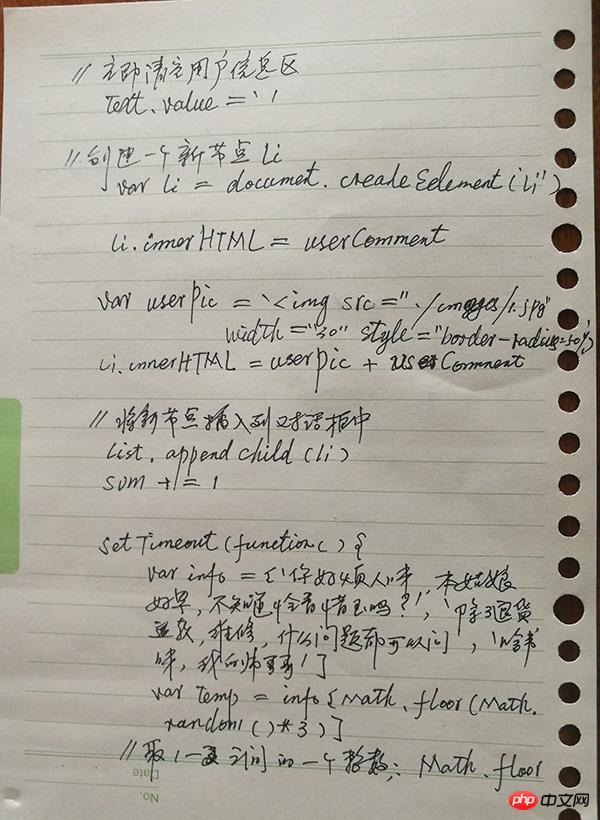 // 立即清空用户信息区
text.value = ' '
// 创建一个新节点 li
var li = document.createEelement('li')
li.innerHTML = userComment
var userPic = '<img src="./images/1.jpg"
width="30" style="border-radius=50%;
li.innerHTML = userpic + userComment
// 将新节点插入到对话框中
list.append child(li)
sum += 1
setTimeout(function() {
var info = ['你好烦人味, 本姑娘
好早, 不知怜香惜玉吗?', '除了退货
退款, 维修, 什么问题都可以问', '啥
味, 我的 哥哥']
var temp = info[Math.floor(Math.
random()*3)]
// 取1- 之间的一个整数; Math.floor
Date
No.
php 中文网